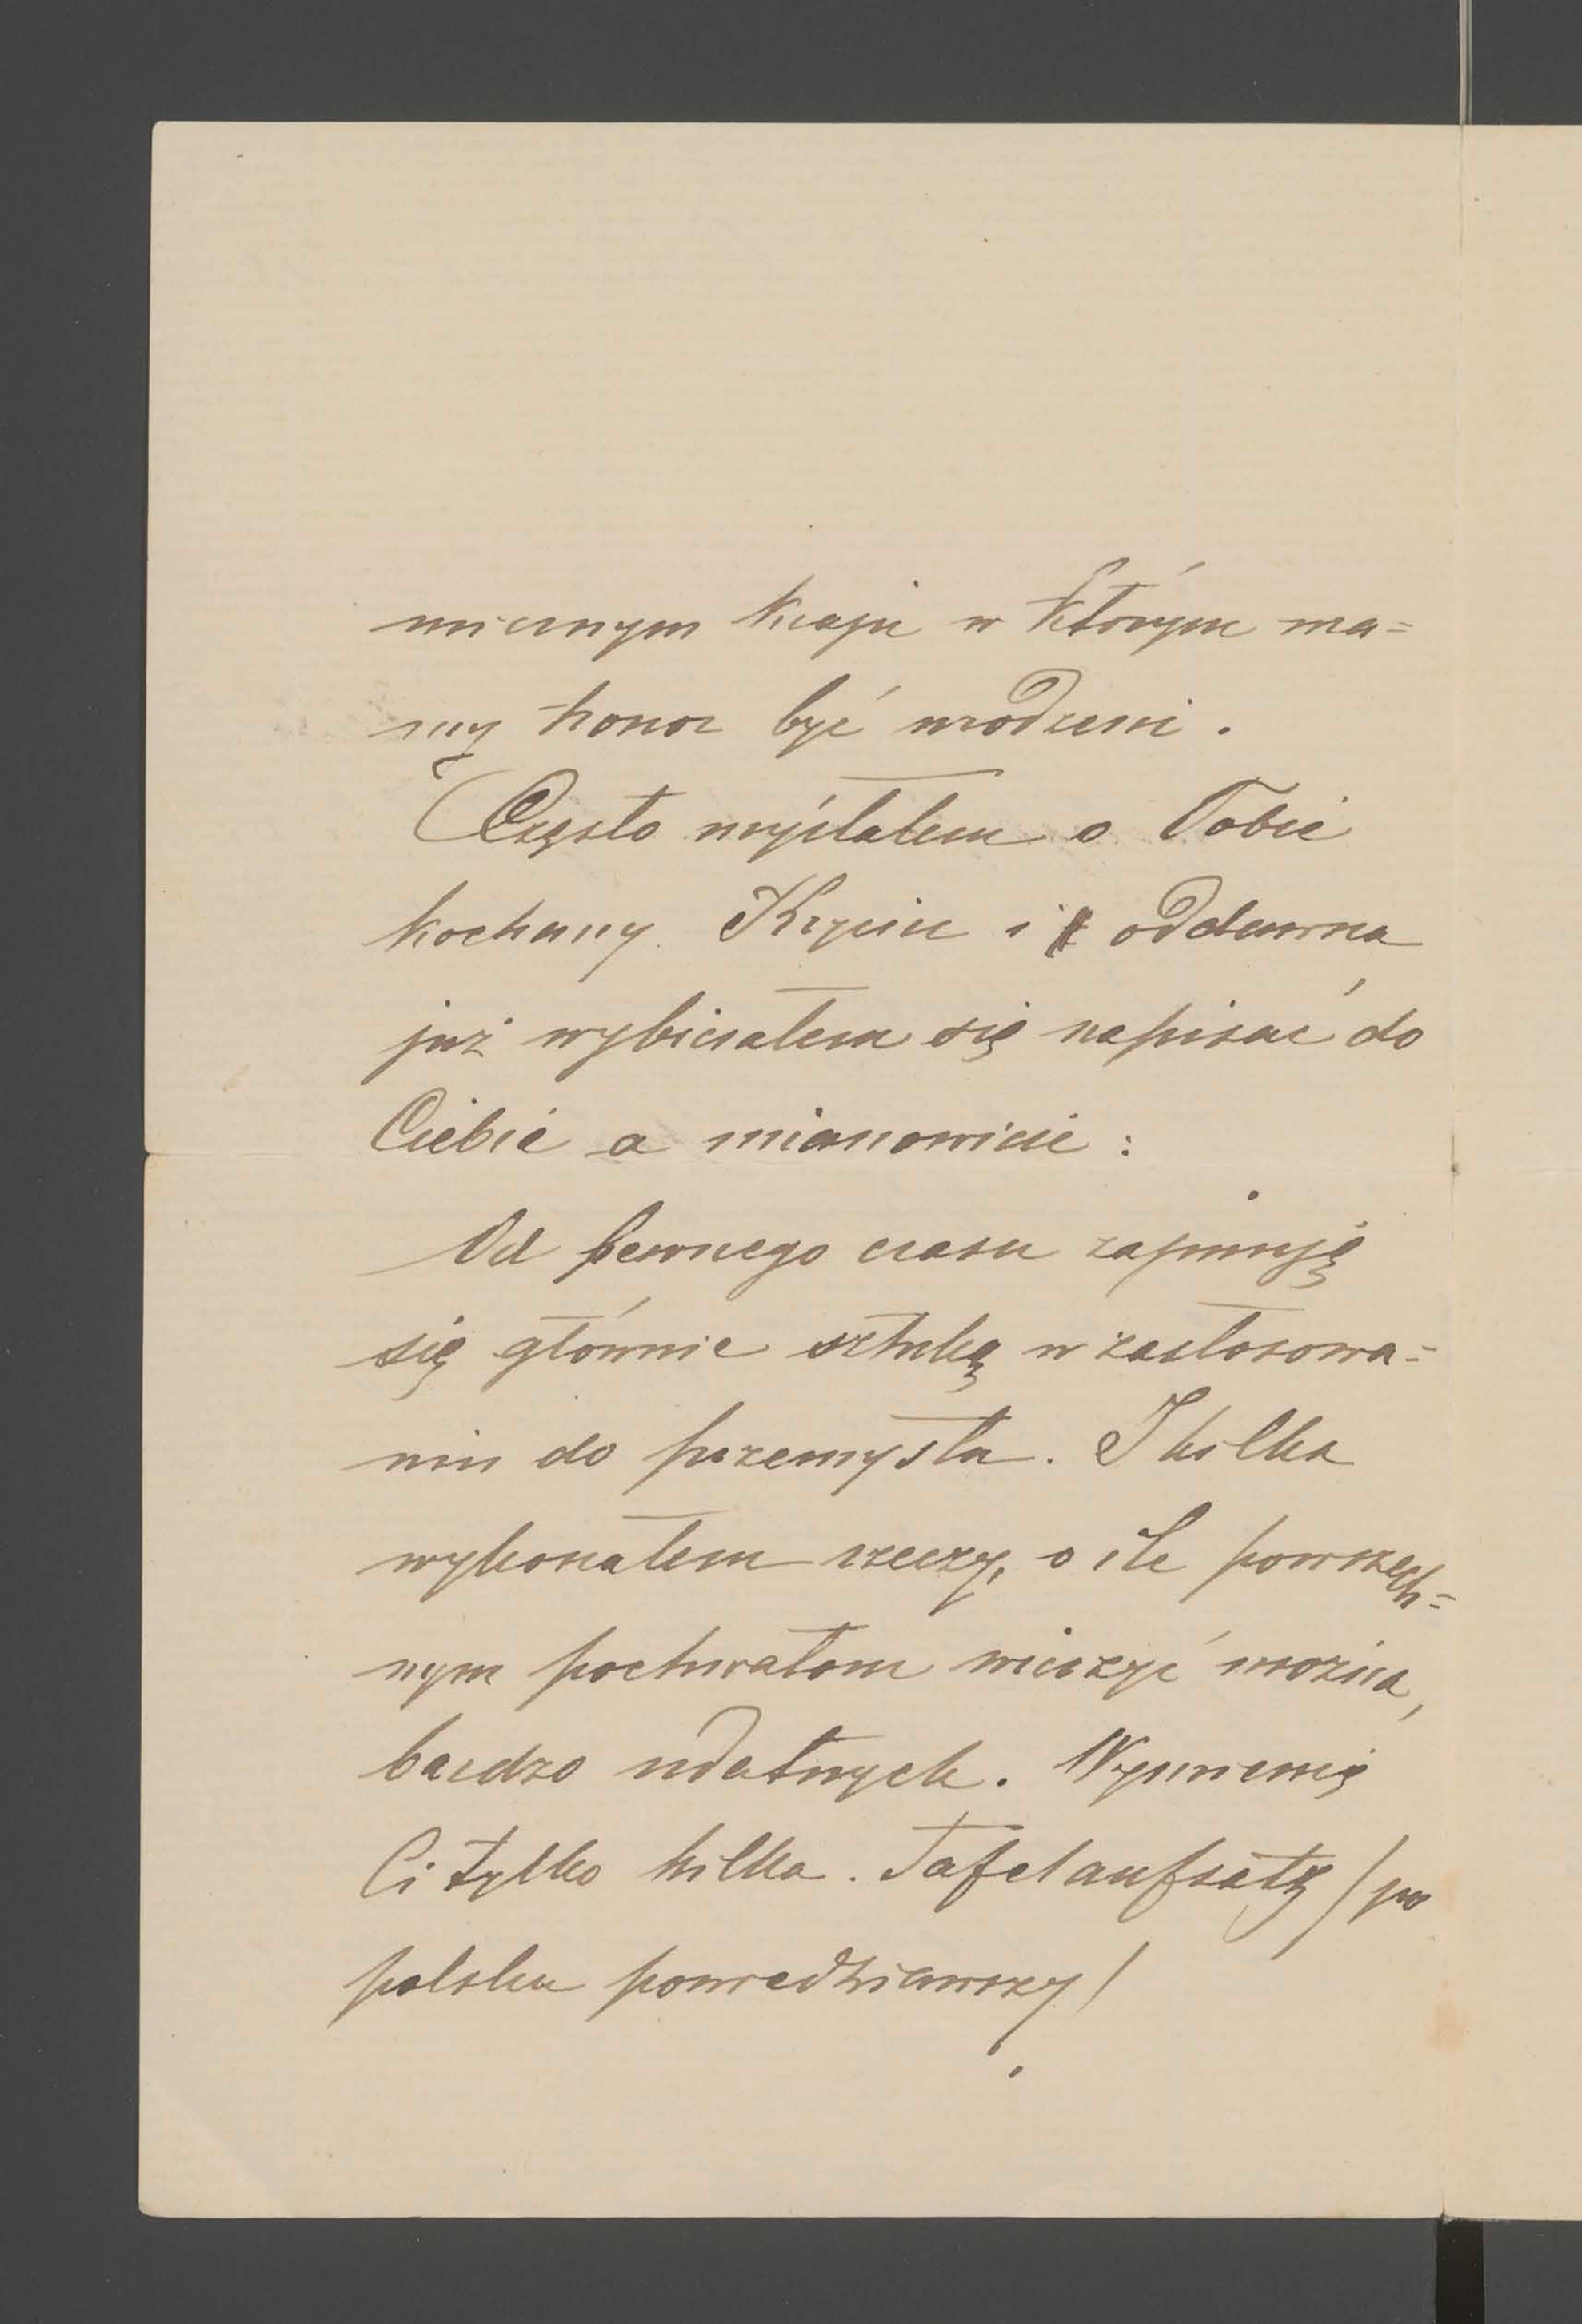 miernym kraju w którym ma=
my honor być urodzeni.
Często myślałem o Tobie
kochany Krzysiu i oddawna
już wybierałem się napisać do
Ciebie a mianowicie:
Od pewnego czasu zajmuję
się głównie sztuką w zastosowa=
niu do przemysłu. I kilka
wykonałem rzeczy, o ile powszech=
nym pochwałom wierzyć można,
bardzo udatnych. Wymienię
Ci tylko kilka. Tafelaufsatz / po
polsku powiedziawszy /